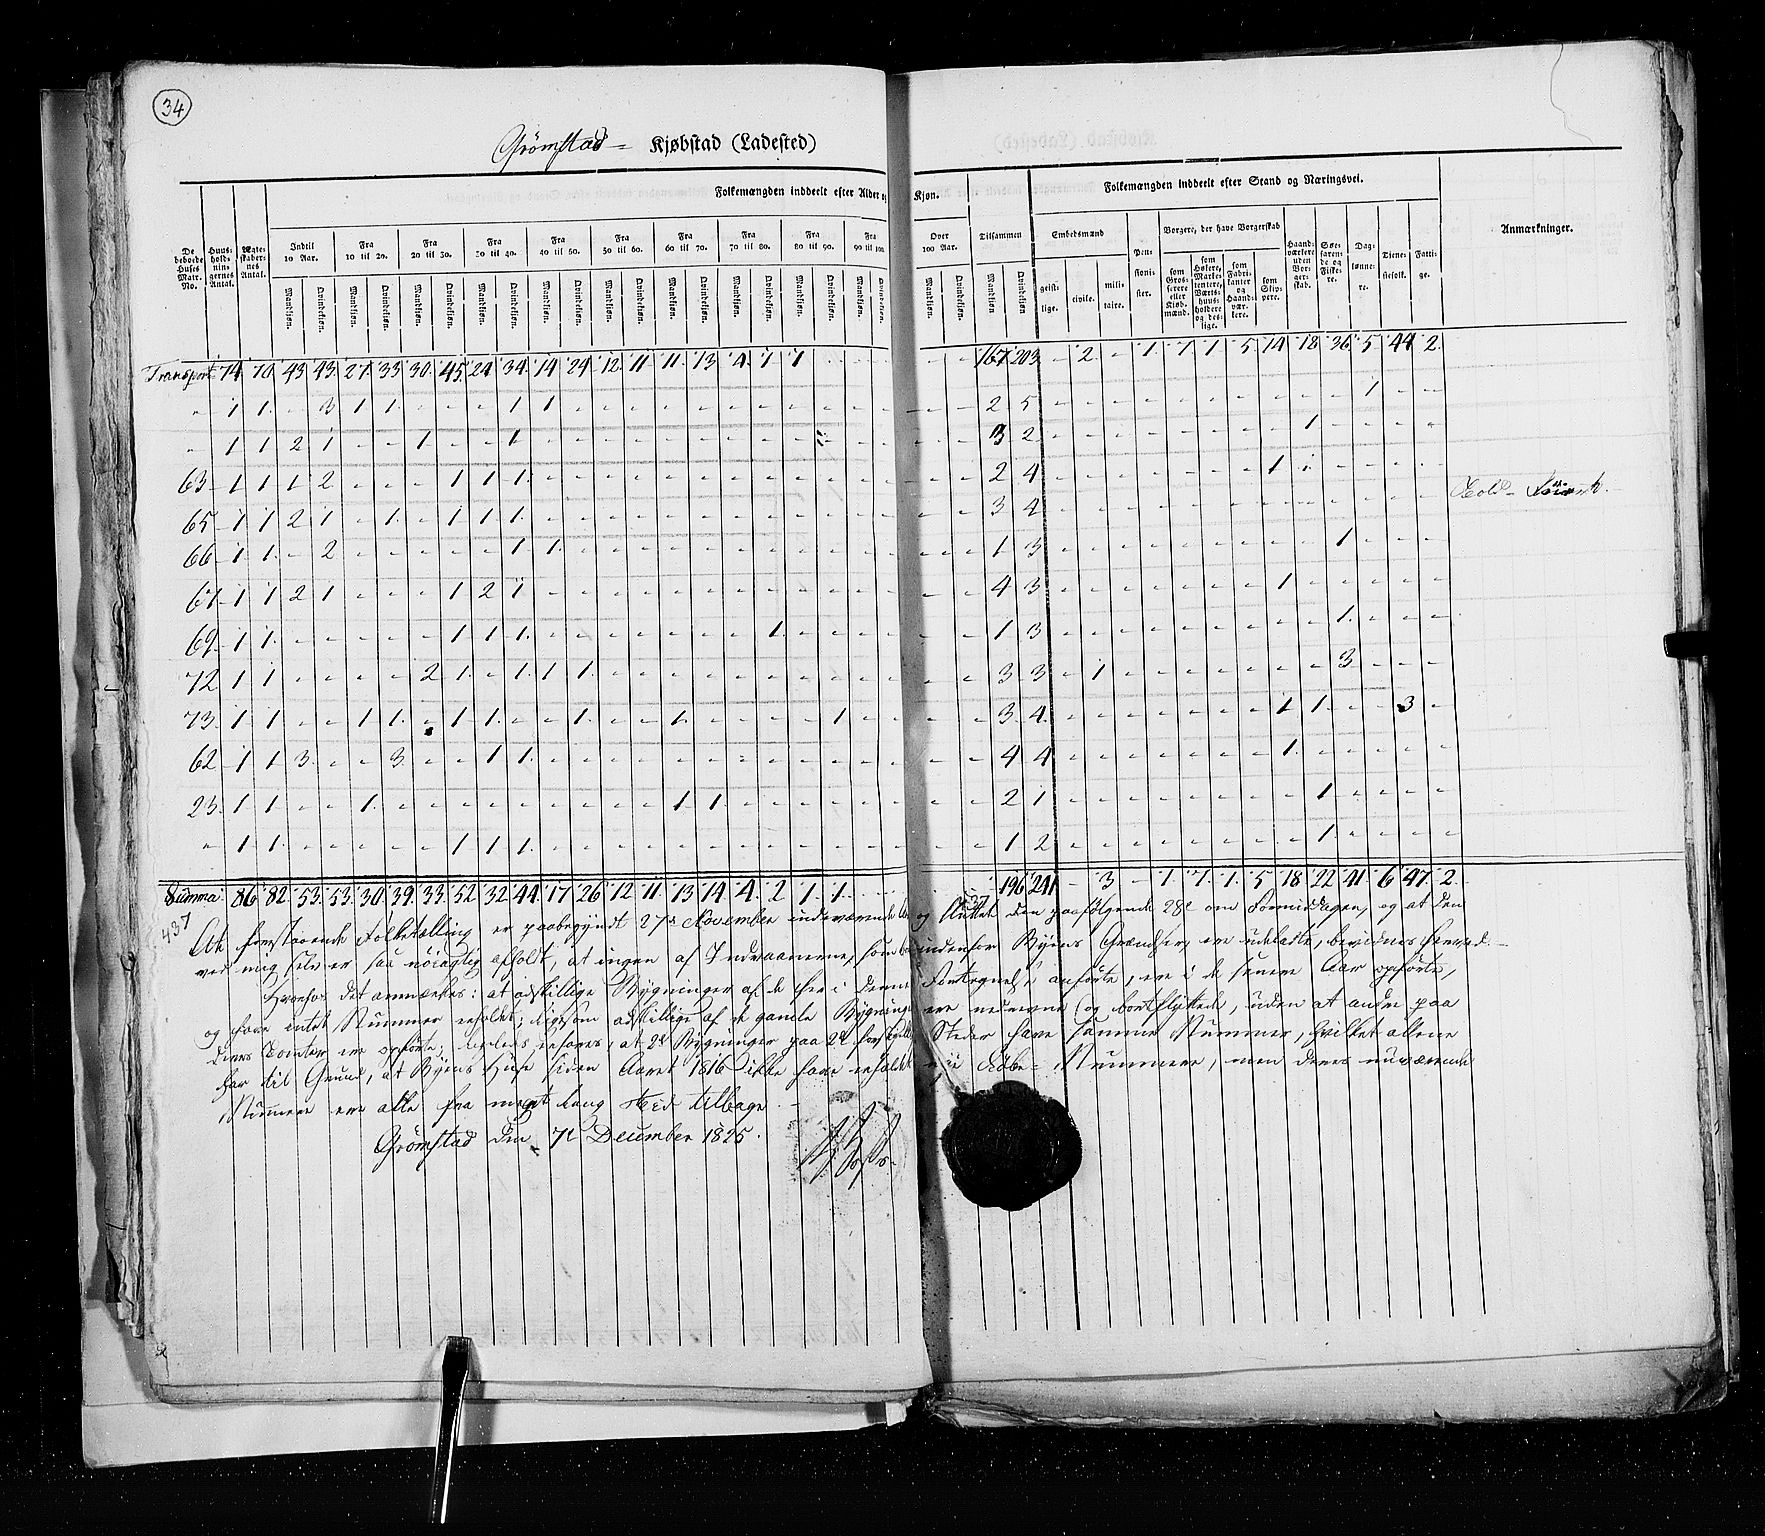 34
Grömstad Kjøbstad (Ladested)
Folkemængden inddeelt efter Alder og Kjøn.
Folkemængden inddeelt efter Stand og Næringsvei.
De beboede Huses Matr. No.
Huusholdningernes Antal.
Ægteskabernes Antal.
Indtil 10 Aar. Fra 10 til 20. Fra 20 til 30. Fra 30 til 40. Fra 40 til 50. Fra 50 til 60. Fra 60 til 70. Fra 70 til 80. Fra 80 til 90. Fra 90 til 100. Over 100 Aar. Tilsammen
Mandkjøn. Qvindekjøn. Mandkjøn. Qvindekjøn. Mandkjøn. Qvindekjøn. Mandkjøn. Qvindekjøn. Mandkjøn. Qvindekjøn. Mandkjøn. Qvindekjøn. Mandkjøn. Qvindekjøn. Mandkjøn. Qvindekjøn. Mandkjøn. Qvindekjøn. Mandkjøn. Qvindekjøn. Mandkjøn. Qvindekjøn. Mandkjøn. Qvindekjøn.
Embedsmænd geistlige. civile. militaire.
Pensionister.
Borgere, der have Borgerskab
som Grosserere eller Kjøbmænd.
som Høkere, Marketentere, Værtshuusholdere og deslige.
som Fabrikanter og Haandværkere.
som Skippere.
Haandværkere uden Borgerskab.
Søefarende og Fiskere.
Daglønnere.
Tjenestefolk.
Fattige.
Anmærkninger.
Transport 74 70 43 43 27 33 30 45 24 34 14 24 12 11 11 13 4 1 1 - - - - - 167 203 - 2 - 1 7 1 5 14 18 36 5 44 2
" 1 1 - 3 1 1 - - - 1 1 - - - - - - - - - - - - - 2 5 - - - - - - - - - - 1 - -
" 1 1 2 1 - - 1 - - 1 - - - - - - - - - - - - - - 3 2 - - - - - - - - 1 - - - -
63 1 1 1 2 - - - 1 1 1 - - - - - - - - - - - - - - 2 4 - - - - - - - 1 - - - - -
65 1 1 2 1 - 1 - 1 1 1 - - - - - - - - - - - - - - 3 4 - - - - - - - - - - - - -
66 1 1 - 2 - - - - - 1 1 - - - - - - - - - - - - - 1 3 - - - - - - - - - 1 - - -
67 1 1 2 1 - - - 1 2 1 - - - - - - - - - - - - - - 4 3 - - - - - - - 1 - - - - -
69 1 1 - - - - - 1 1 1 - - - - - - - 1 - - - - - - 1 3 - - - - - - - - - 1 - - -
72 1 1 - - - - 2 1 - 1 1 1 - - - - - - - - - - - - 3 3 - 1 - - - - - - - 3 - - -
73 1 1 - - 1 1 - 1 1 - - 1 - - 1 - - - - 1 - - - - 3 4 - - - - - - - 1 1 - - 3 -
62 1 1 3 - - 3 - - 1 1 - - - - - - - - - - - - - - 4 4 - - - - - - - 1 - - - - -
23 1 1 - - 1 - - - - - - - - - 1 1 - - - - - - - - 2 1 - - - - - - - - 1 - - - -
" 1 1 - - - - - 1 1 1 - - - - - - - - - - - - - - 1 2 - - - - - - - - 1 - - - -
Summa 86 82 53 53 30 39 33 52 32 44 17 26 12 11 13 14 4 2 1 1 - - - - 196 241 - 3 - 1 7 1 5 18 22 41 6 47 2
437
At foranstaaende Folketælling er paabegyndt 27de November indeværende Aar og sluttet den paafølgende 28de om Formiddagen, og at den
ved mig selv er saa nöiagtig afholdt, at ingen af Indvaanerne, som boe indenfor Byens Grændser, ere udeladte, bevidnes herved.
Hvorhos det anmærkes: at adskillige Bygninger af de her i denne Fortegnelse anförte, ere i de senere Aar opförte,
og have intet Nummer erholdt; ligesom adskillige af de gamle Bygninger ere nedrevne (og bortflyttede, uden at andre paa
deres Tomter ere opförte; at 2de Bygninger paa 2de forskjellige Steder have samme Nummer, hvilket allene
har til Grund, at Byens Huse siden Aaret 1816 ikke have erholdt nye Nummere, men deres nuværende
Nummere ere alle fra meget lang Tid tilbage.
Grömstad den 7de December 1825.